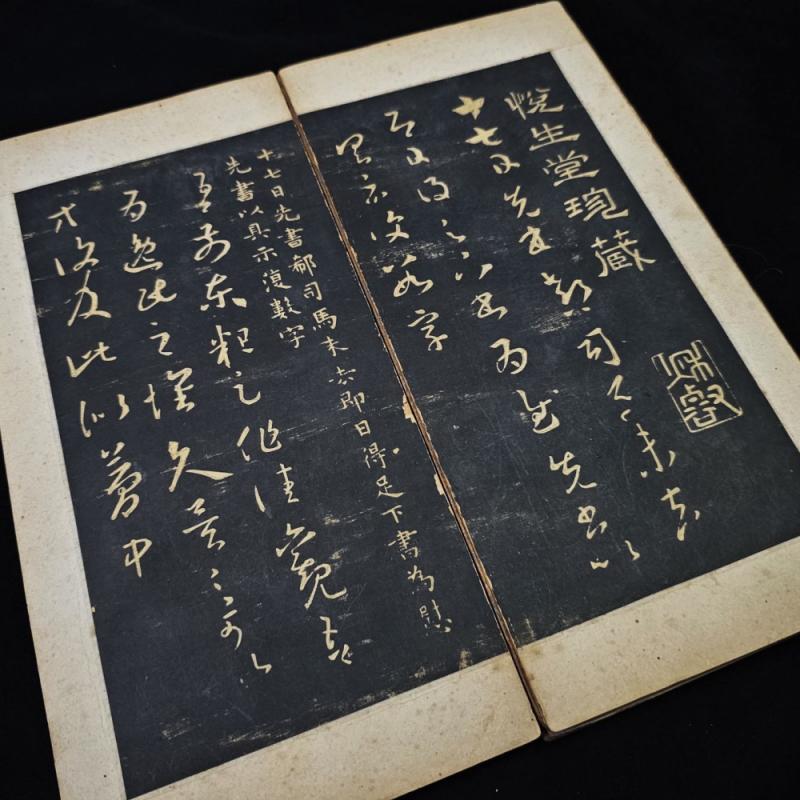 悅生堂珍藏
十七日先書郗司馬未去
即日得足下書為慰先書以
具示復數字
十七日先書郗司馬未去即日得足下書為慰
先書以具示復數字
吾前東粗足作佳觀吾
為逸民之懷久矣足下何以
方復及此似夢中